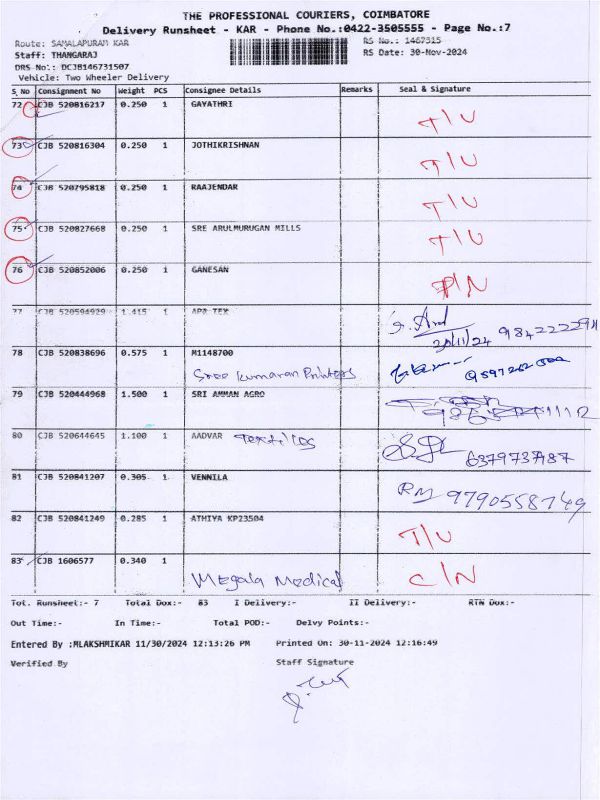 THE PROFESSIONAL COURIERS, COIMBATORE
Delivery Runsheet - KAR - Phone No.:0422-3505555 - Page No.:7
Route: SAMALAPURAM KAR
RS No.: 1467315
Staff: THANGARAJ
RS Date: 30-Nov-2024
DRS No.: DCJB146731507
Vehicle: Two Wheeler Delivery
S. No Consignment No Weight PCS Consignee Details Remarks Seal & Signature
72 CJB 520816217 0.250 1 GAYATHRI T/U
73 CJB 520816304 0.250 1 JOTHIKRISHNAN T/U
74 CJB 520795818 0.250 1 RAAJENDAR T/U
75 CJB 520827668 0.250 1 SRE ARULMURUGAN MILLS T/U
76 CJB 520852006 0.250 1 GANESAN P/N
77 CJB 520594929 1.415 1 APR TEX
78 CJB 520838696 0.575 1 M1148700
Sree Kumaran Printers
79 CJB 520444968 1.500 1 SRI AMMAN AGRO
80 CJB 520644645 1.100 1 AADVAR Textiles 6379737987
81 CJB 520841207 0.305 1 VENNILA RM 9790558749
82 CJB 520841249 0.285 1 ATHIYA KP23504 T/U
83 CJB 1606577 0.340 1 C/N
Megala Medical
Tot. Runsheet:- 7 Total Dox:- 83 I Delivery:- II Delivery:- RTN Dox:-
Out Time:- In Time:- Total POD:- Delvy Points:-
Entered By :MLAKSHMIKAR 11/30/2024 12:13:26 PM Printed On: 30-11-2024 12:16:49
Verified By Staff Signature